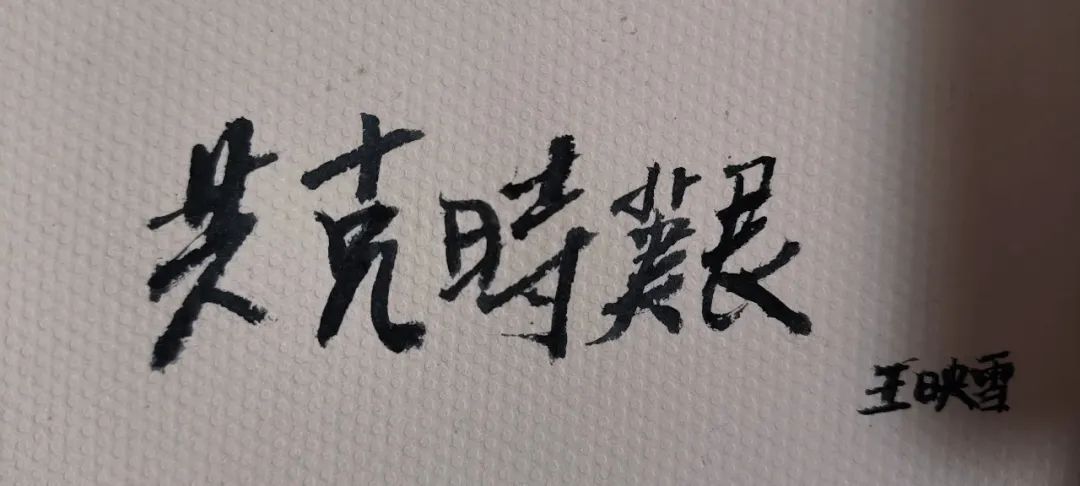 共克時艱
王映雪